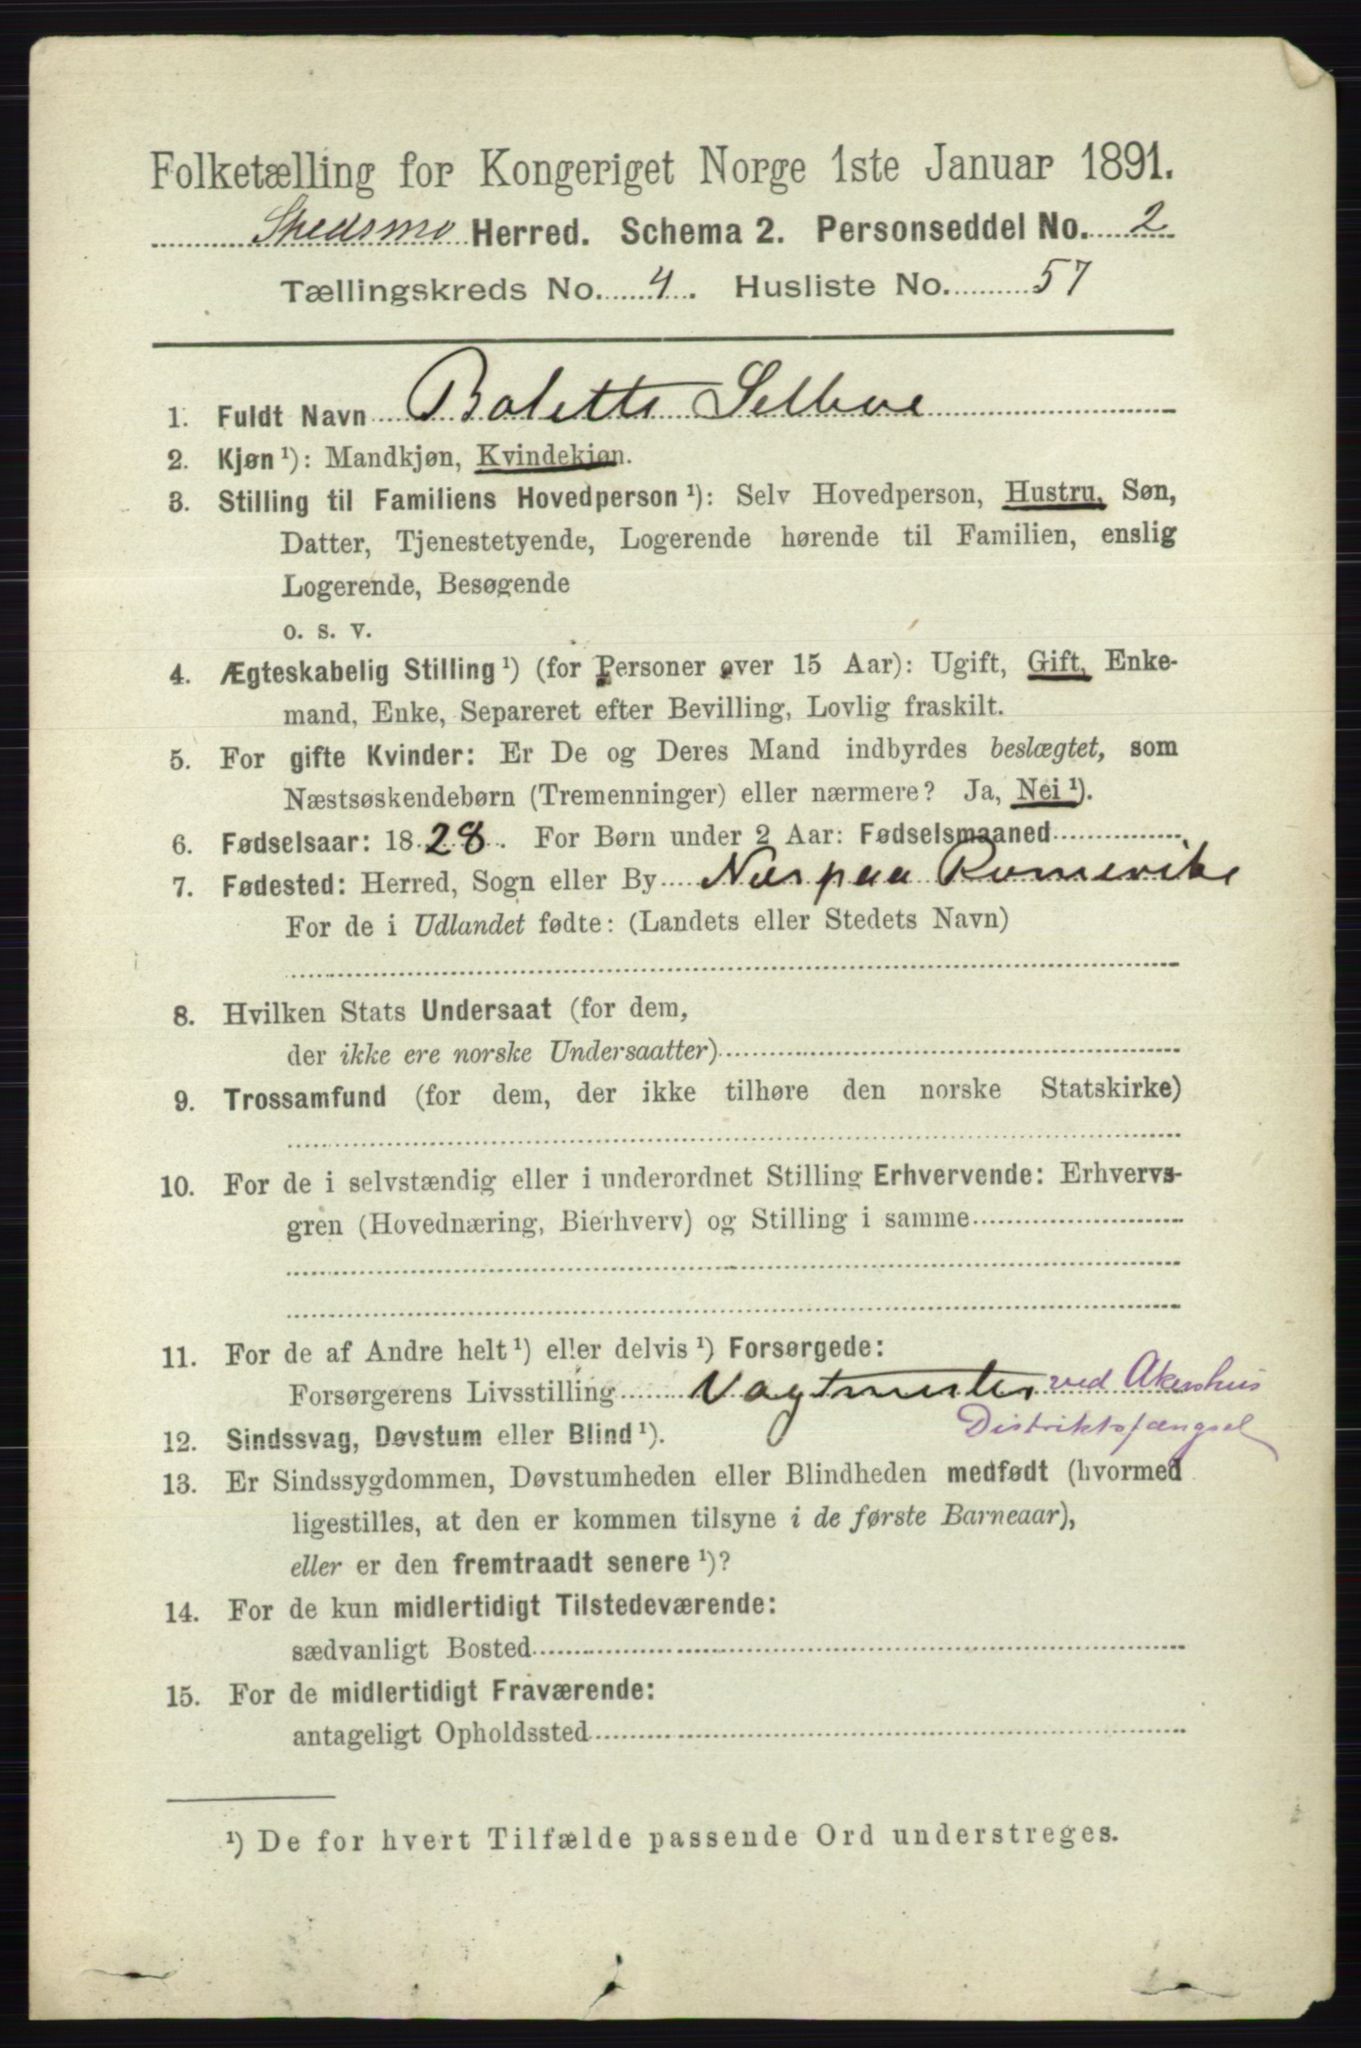 Folketælling for Kongeriget Norge 1ste Januar 1891.
Skedsmo Herred. Schema 2. Personseddel No. 2
Tællingskreds No. 4. Husliste No. 57
1. Fuldt Navn Bolette Selboe
2. Kjøn ¹): Mandkjøn, Kvindekjøn.
3. Stilling til Familiens Hovedperson ¹): Selv Hovedperson, Hustru, Søn,
Datter, Tjenestetyende, Logerende hørende til Familien, enslig
Logerende, Besøgende
o. s. v.
4. Ægteskabelig Stilling ¹) (for Personer over 15 Aar): Ugift, Gift, Enke-
mand, Enke, Separeret efter Bevilling, Lovlig fraskilt.
5. For gifte Kvinder: Er De og Deres Mand indbyrdes beslægtet, som
Næstsøskendebørn (Tremenninger) eller nærmere? Ja, Nei ¹).
6. Fødselsaar: 1828. For Børn under 2 Aar: Fødselsmaaned
7. Fødested: Herred, Sogn eller By Næs paa Romerike
For de i Udlandet fødte: (Landets eller Stedets Navn)
8. Hvilken Stats Undersaat (for dem,
der ikke ere norske Undersaatter)
9. Trossamfund (for dem, der ikke tilhøre den norske Statskirke)
10. For de i selvstændig eller i underordnet Stilling Erhvervende: Erhvervs-
gren (Hovednæring, Bierhverv) og Stilling i samme
11. For de af Andre helt ¹) eller delvis ¹) Forsørgede:
Forsørgerens Livsstilling Vagtmester ved Akershus
Distriktsfængsel
12. Sindssvag, Døvstum eller Blind ¹).
13. Er Sindssygdommen, Døvstumheden eller Blindheden medfødt (hvormed
ligestilles, at den er kommen tilsyne i de første Barneaar),
eller er den fremtraadt senere ¹)?
14. For de kun midlertidigt Tilstedeværende:
sædvanligt Bosted
15. For de midlertidigt Fraværende:
antageligt Opholdssted
¹) De for hvert Tilfælde passende Ord understreges.